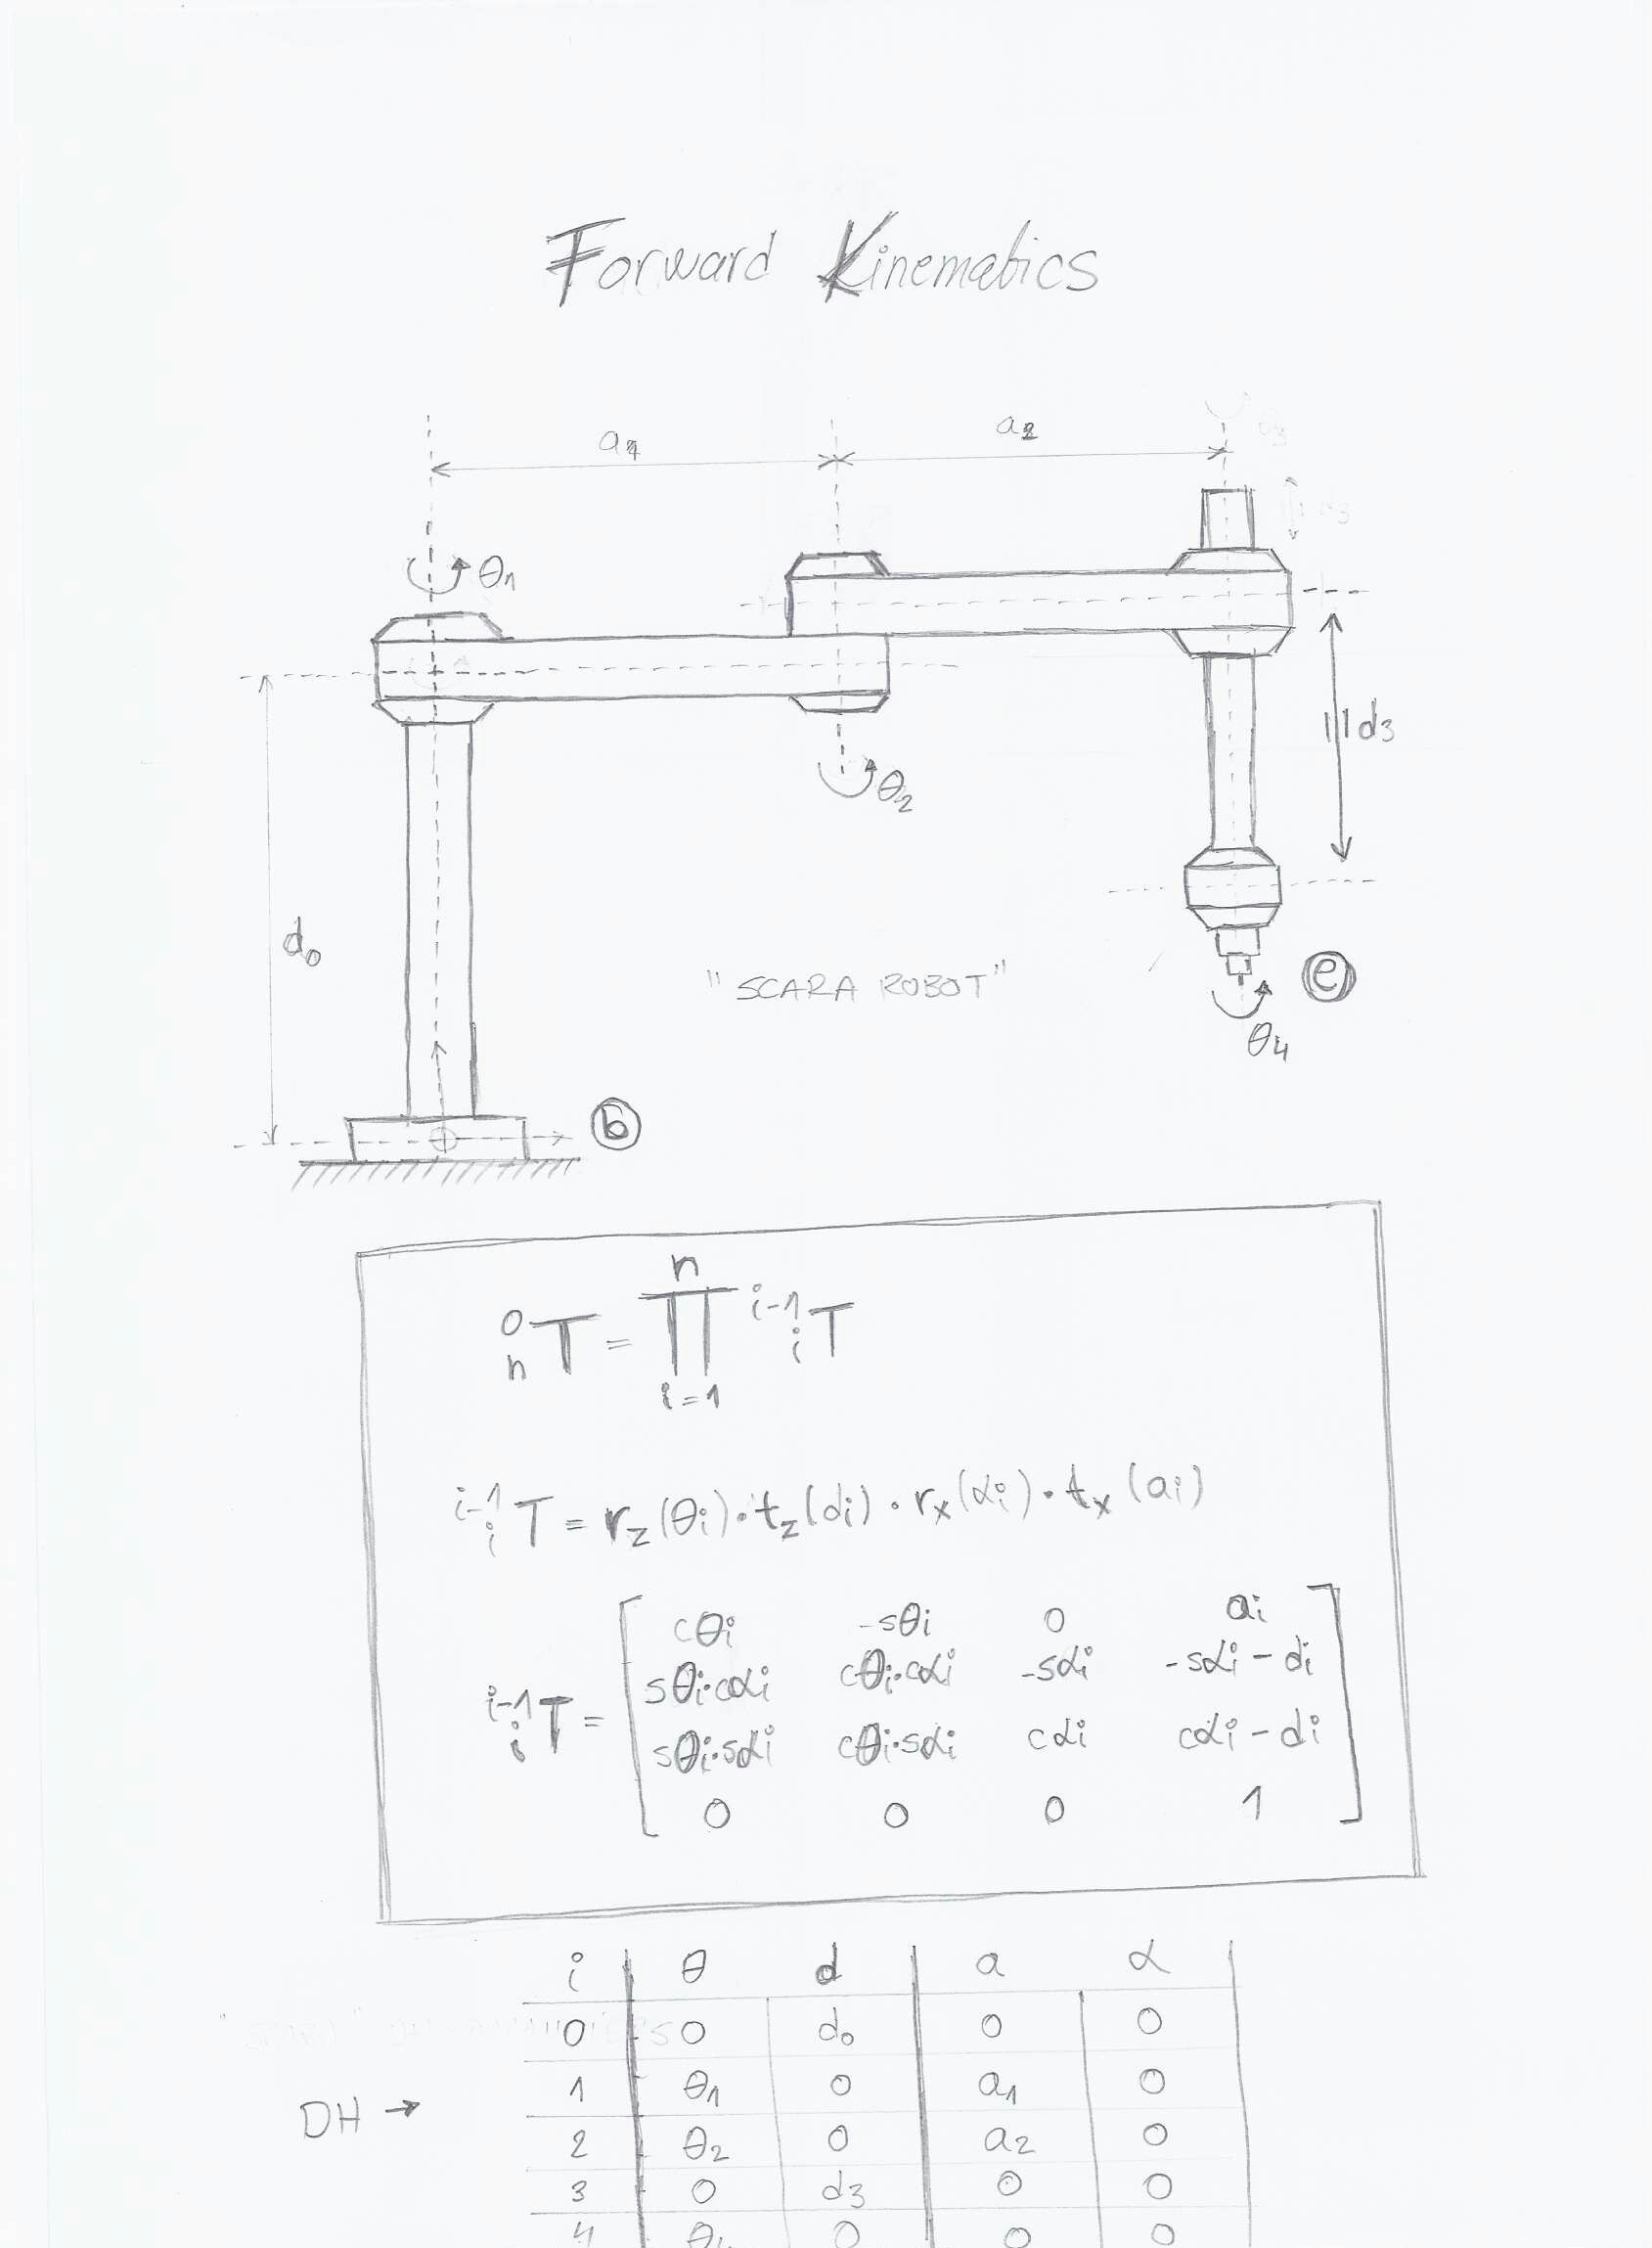 Forward Kinematics
a1 a2
θ1
d3
θ2
d0
"SCARA ROBOT" e
θ4
b
n
0nT = ∏ i-1iT
i=1
i-1iT = rz(θi)·tz(di)·rx(αi)·tx(ai)
cθi -sθi 0 ai
sθi·cαi cθi·cαi -sαi -sαi - di
i-1iT =
sθi·sαi cθi·sαi cαi cαi - di
0 0 0 1
i θ d a α
0 0 d0 0 0
1 θ1 0 a1 0
DH →
2 θ2 0 a2 0
3 0 d3 0 0
4 0 0 0